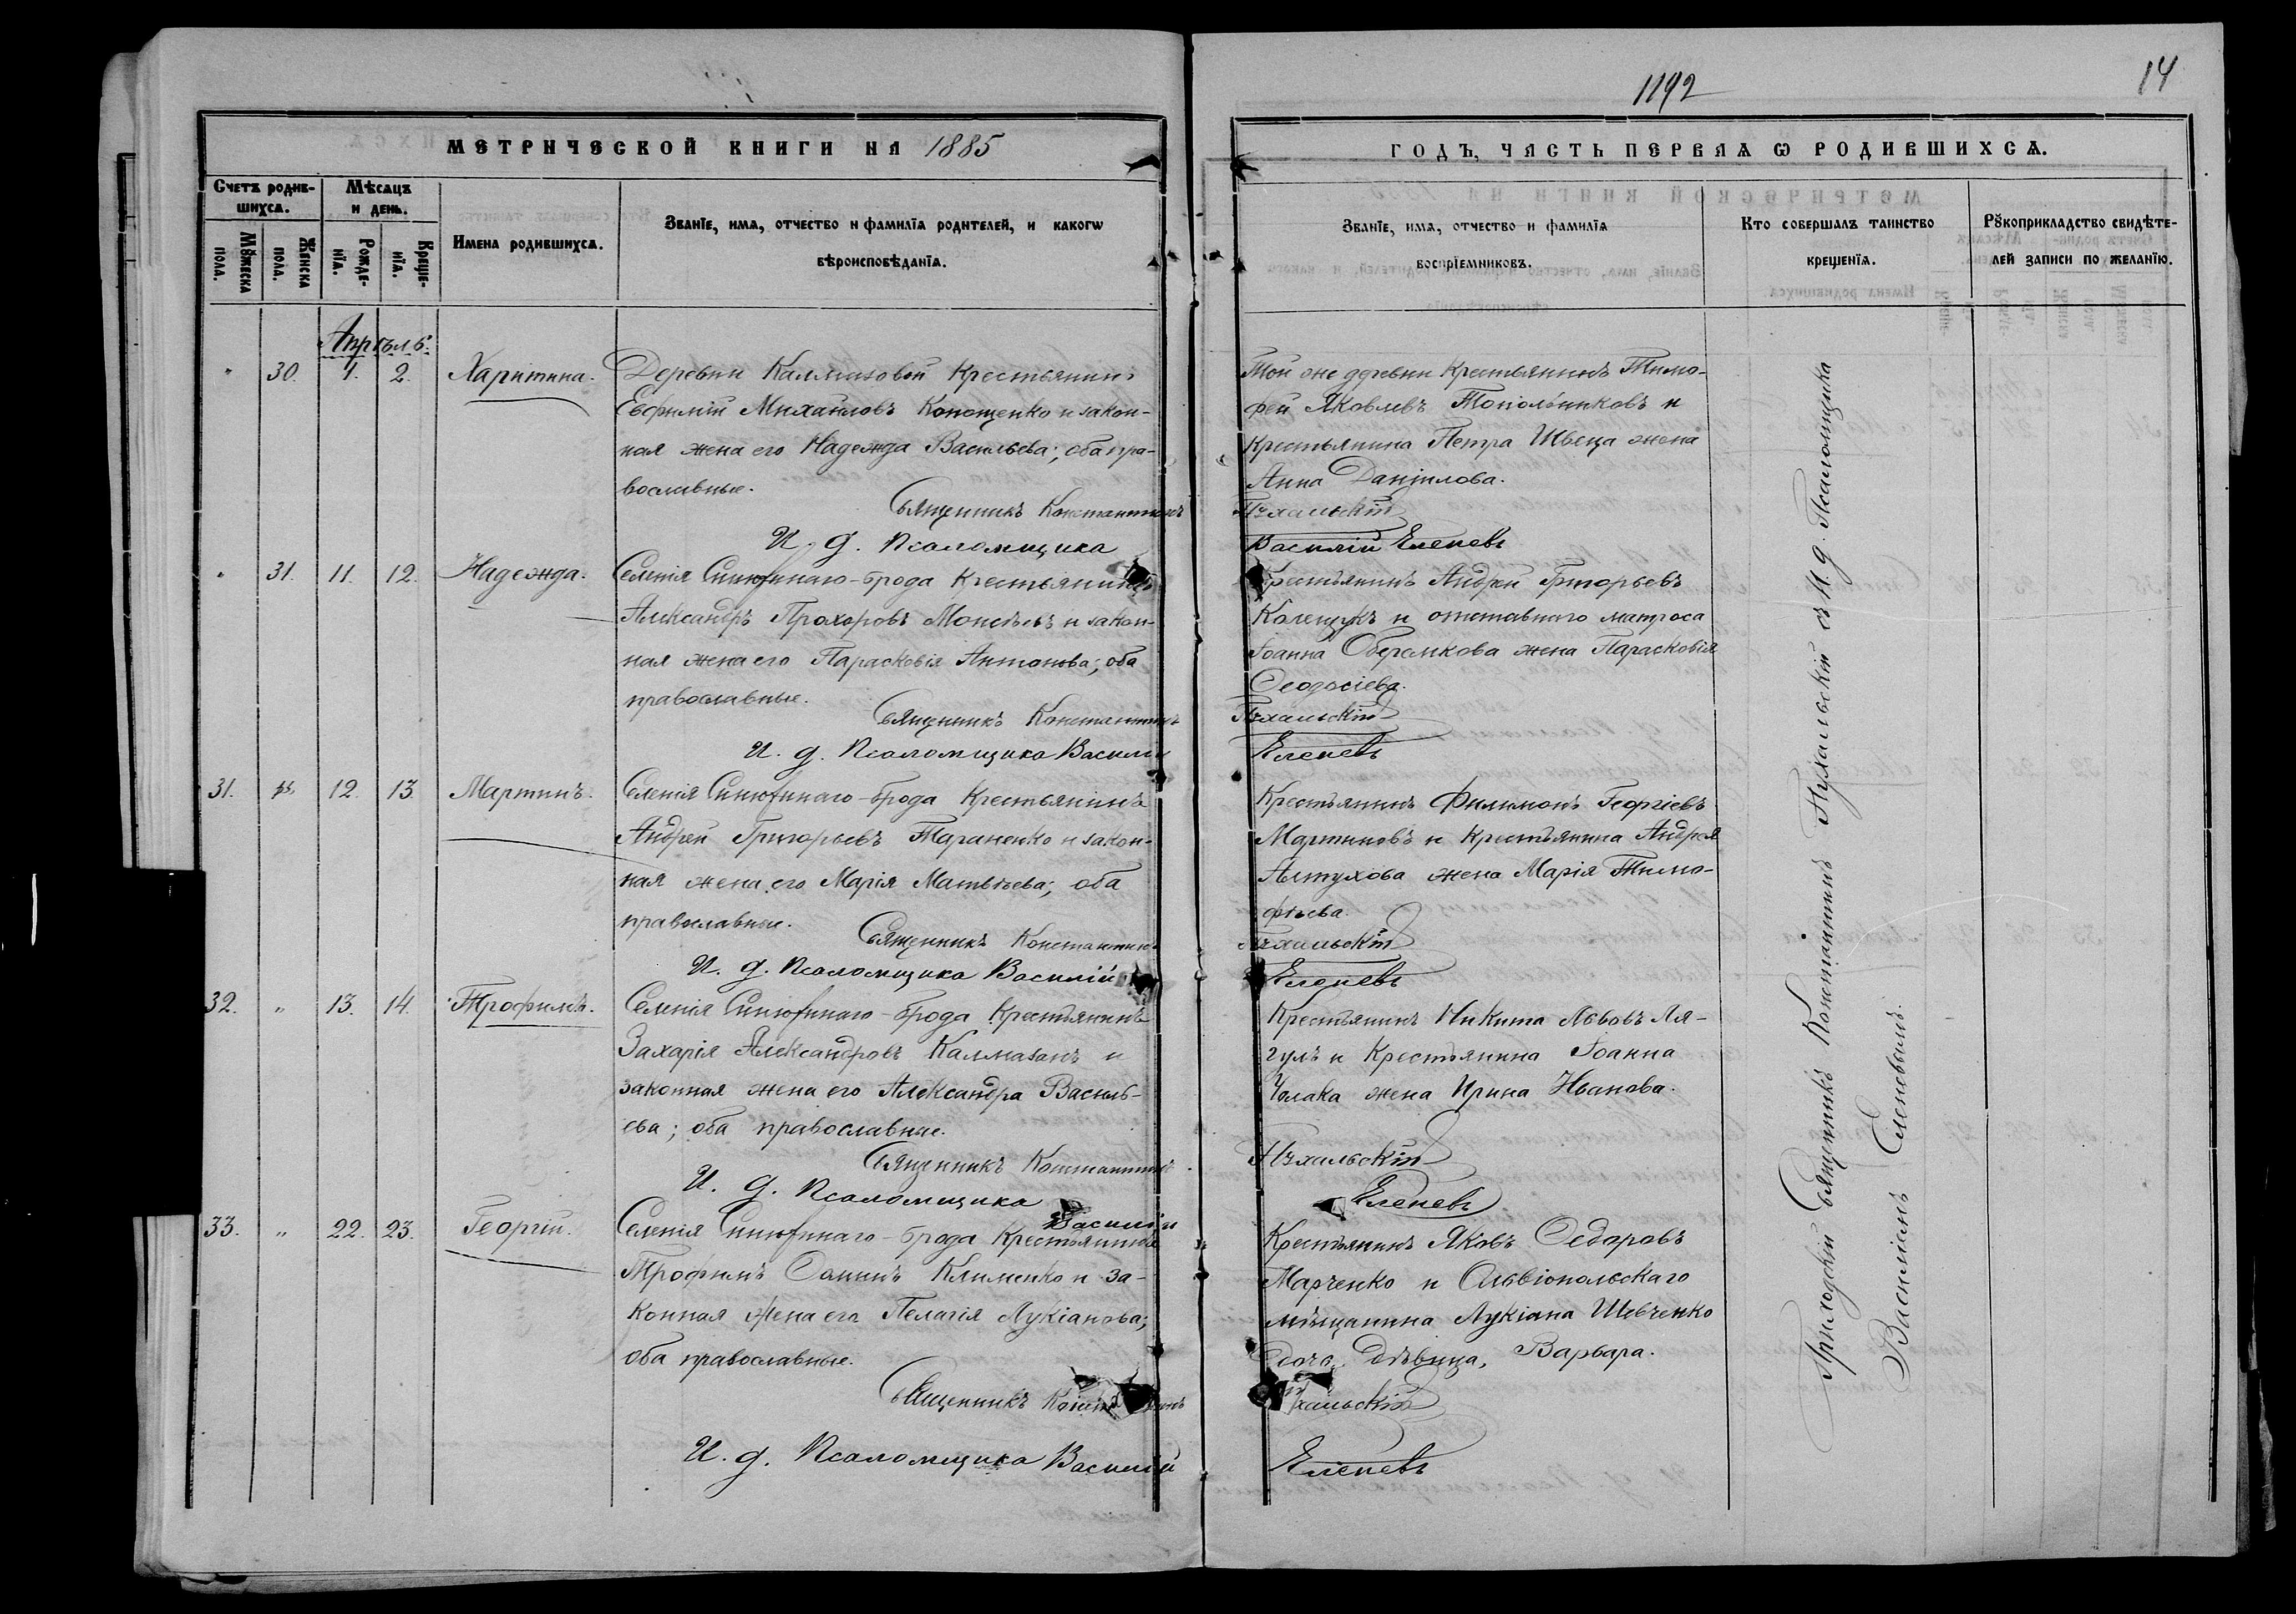 1192
14
МЕТРИЧЕСКОЙ КНИГИ НА 1885
ГОДЪ, ЧАСТЬ ПЕРВАЯ Ѡ РОДИВШИХСѦ.
Счетъ родившихсѧ.
Мѣсѧцъ и день.
Мꙋжеска пола.
Женска пола.
Рожденїѧ.
Крещенїѧ.
Имена родившихсѧ.
Званїе, имѧ, отчество и фамилїѧ родителей, и какогѡ
вѣроисповѣданїѧ.
Званїе, имѧ, отчество и фамилїѧ
воспрїемниковъ.
Кто совершалъ таинство
крещенїѧ.
Рꙋкоприкладство свидѣте-
лей записи по желанїю.
Апрѣль.
" 30. 1. 2. Харитина.
Деревни Калмазовой Крестьянинъ
Евфимій Михайловъ Конощенко и закон-
ная жена его Надежда Васильева; оба пра-
вославные.
Священникъ Константинъ
И. д. Псаломщика
Той же деревни Крестьянинъ Тимо-
фей Яковлевъ Топольниковъ и
Крестьянина Петра Швеца жена
Анна Даніилова.
Пухальскій
Василій Еленевъ
" 31. 11. 12. Надежда.
Селенія Синюхинаго-брода Крестьянинъ
Александръ Прохоровъ Моисѣевъ и закон-
ная жена его Парасковія Антонова; оба
православные.
Священникъ Константинъ
И. д. Псаломщика Василій
Крестьянинъ Андрей Григорьевъ
Колещукъ и отставнаго матроса
Іоанна Оберемкова жена Парасковія
Ѳеодосіева.
Пухальскій
Еленевъ
31. " 12. 13. Мартинъ.
Селенія Синюхинаго-брода Крестьянинъ
Андрей Григорьевъ Тараненко и закон-
ная жена его Марія Матвѣева; оба
православные.
Священникъ Константинъ
И. д. Псаломщика Василій
Крестьянинъ Филимонъ Георгіевъ
Мартиновъ и Крестьянина Андрея
Алтухова жена Марія Тимо-
фѣева.
Пухальскій
Еленевъ
32. " 13. 14. Трофимъ.
Селенія Синюхинаго-брода Крестьянинъ
Захарія Александровъ Калмазанъ и
законная жена его Александра Василь-
ева; оба православные.
Священникъ Константинъ
И. д. Псаломщика
Василій
Крестьянинъ Никита Львовъ Ля-
гулъ и Крестьянина Іоанна
Чолака жена Ирина Иванова.
Пухальскій
Еленевъ
33. " 22. 23. Георгій.
Селенія Синюхинаго-брода Крестьянинъ
Трофимъ Ѳоминъ Клименко и за-
конная жена его Пелагія Лукіанова;
оба православные.
Священникъ Константинъ
И. д. Псаломщика Василій
Крестьянинъ Яковъ Ѳедоровъ
Марченко и Ольвіопольскаго
мѣщанина Лукіана Шевченко
дочь дѣвица, Варвара.
Пухальскій
Еленевъ
Приходскій Священникъ Константинъ Пухальскій съ И. д. Псаломщика
Василіемъ Еленевымъ.